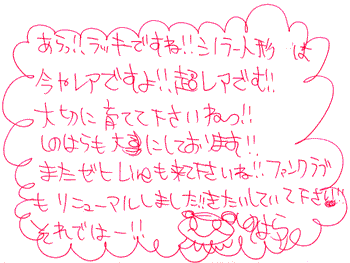 あらっ!!ラッキーですね!!シノラー人形は
今やレアですよ!!超レアです!!
大切に育てて下さいねっ!!
しのはらも大事にしております!!
またぜひLiveも来て下さいね!!ファンクラブ
もリニューアルしました!!きたいしていて下さい!!
それではー!! しのはら